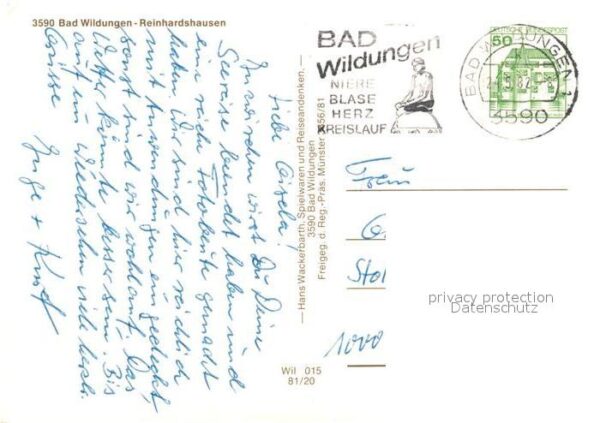 3590 Bad Wildungen - Reinhardshausen
Liebe Gisela!
Inzwischen wirst Du Deine
Seereise beendet haben und
eine reiche Fotobeute gemacht
haben. Wir sind hier reichlich
mit Anwendungen eingedeckt,
sonst sind wir wohlauf. Das
Wetter könnte besser sein. Bis
auf ein Wiedersehen viele herzl.
Grüsse
Inge + Kurt
Hans Wackerbarth, Spielwaren und Reiseandenken,
3590 Bad Wildungen
Freigeg. d. Reg.-Präs. Münster 5856/81
Wil 015
81/20
BAD
Wildungen
NIERE
BLASE
HERZ
KREISLAUF
BAD WILDUNGEN 1
3590
50
DEUTSCHE BUNDESPOST
Frau
G
Stol
1000
privacy protection
Datenschutz